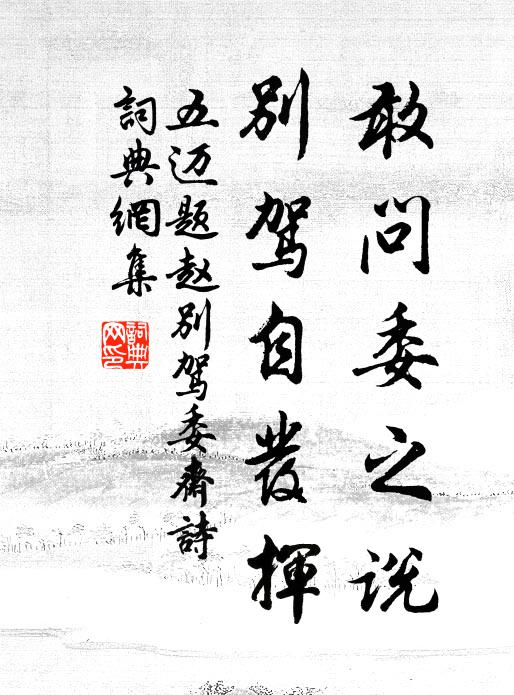 敢问委之说
别驾自發揮
五迈题赵别驾委齋詩
詞典網集
詞典网印